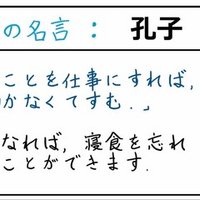 の名言： 孔子
ことを仕事にすれば，
かなくてすむ．」
なれば，寝食を忘れ
ことができます．